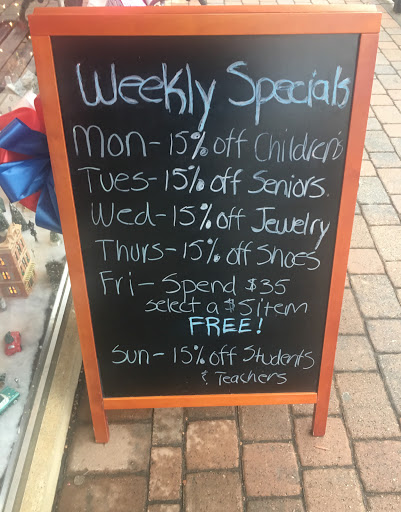 Weekly Specials
Mon-15% off Children's
Tues-15% off Seniors.
Wed-15% off Jewelry
Thurs-15% off Shoes
Fri-Spend $35
select a $5 item
FREE!
Sun-15% off Students
& Teachers